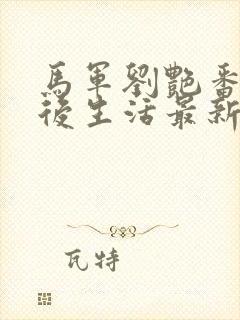 馬軍劉艷番
後生活最新
瓦特